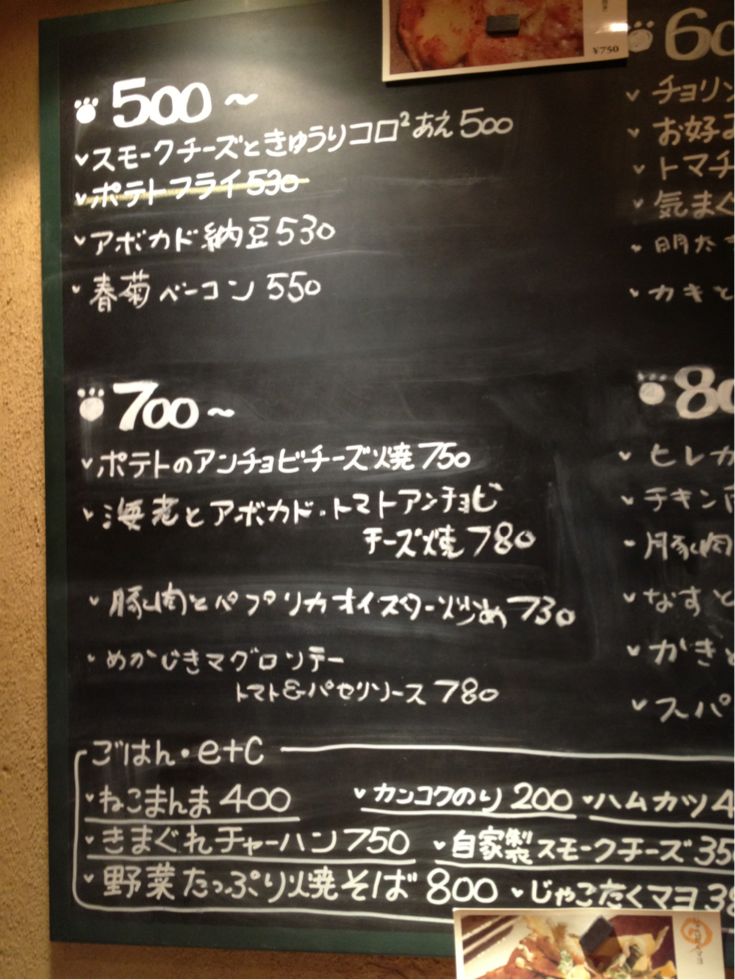 ¥750
500〜
スモークチーズときゅうりコロ²あえ500
ポテトフライ530
アボカド納豆530
春菊ベーコン 550
700〜
ポテトのアンチョビチーズ焼750
海老とアボカド・トマトアンチョビ
チーズ焼780
豚肉とパプリカオイスター炒め730
めかじきマグロンテー
トマト&パセリソース 780
60
チョリン
お好み
トマチ
気まぐ
明た
カキと
80
ヒレカ
チキン
豚肉
なすと
かきと
スパ
ごはん・etc
ねこまんま400
カンコクのり 200
ハムカツ4
きまぐれチャーハン750
自家製スモークチーズ35
野菜たっぷり焼そば 800
じゃこたくマヨ 38